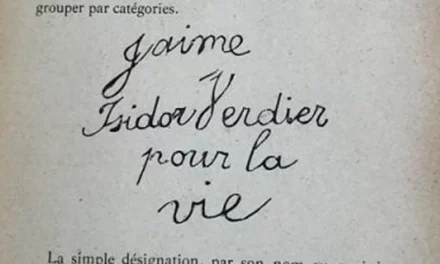 grouper par catégories.
Jaime
Isidor Verdier
pour la
vie
La simple désignation, par son nom